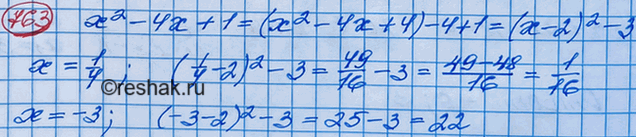 763 x² - 4x + 1 = (x² - 4x + 4) - 4 + 1 = (x - 2)² - 3
x = 1/4; (1/4 - 2)² - 3 = 49/16 - 3 = (49 - 48)/16 = 1/16
x = -3; (-3 - 2)² - 3 = 25 - 3 = 22
©Reshak.ru